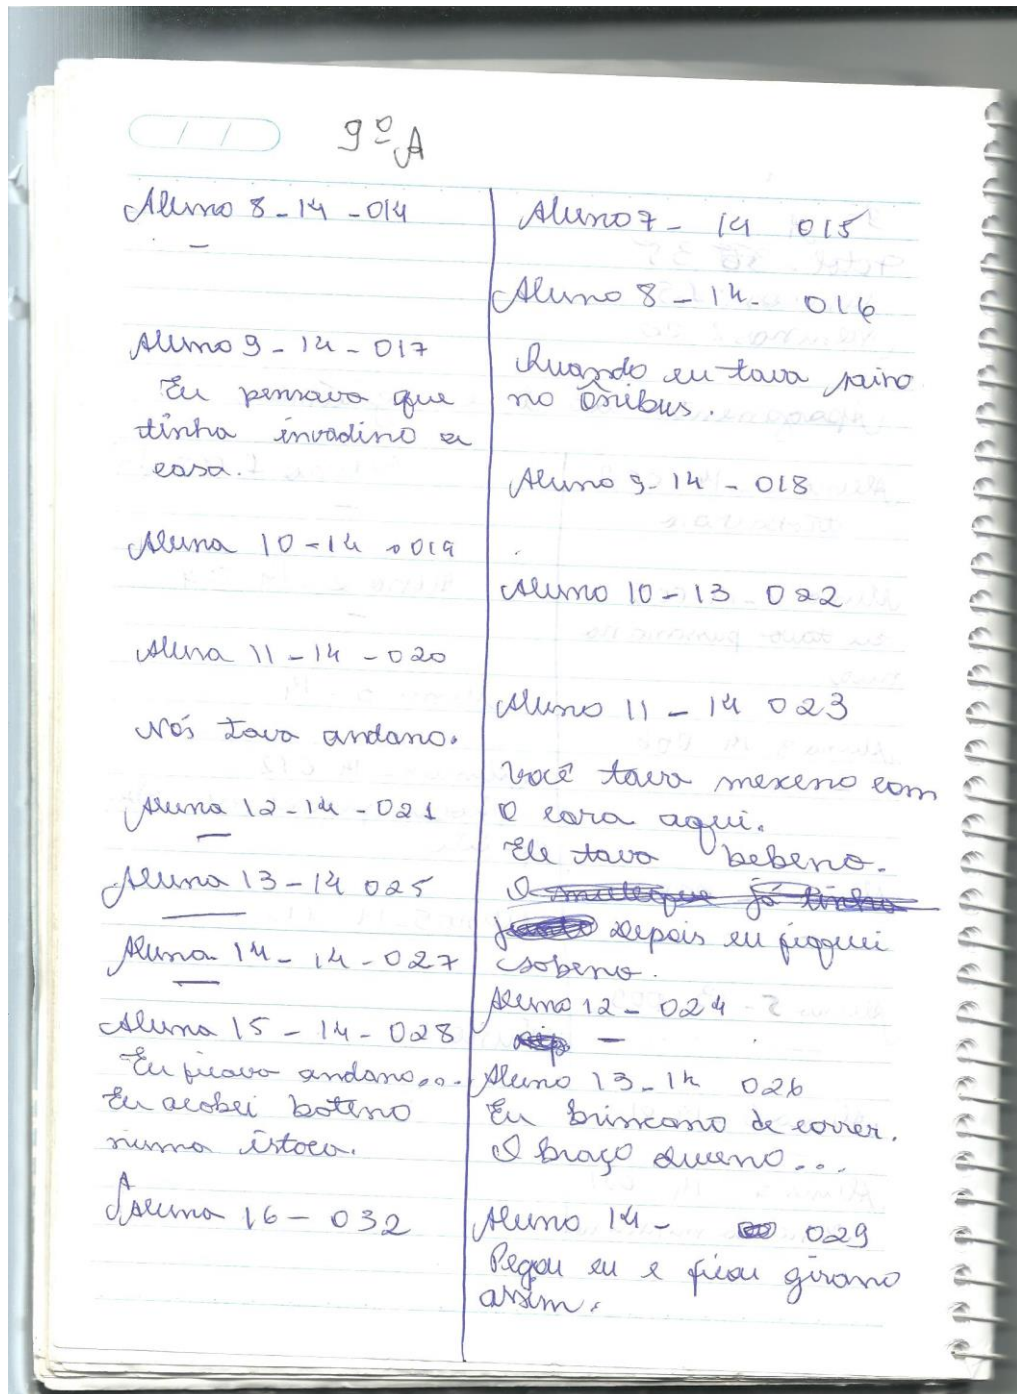 9º A
Aluno 8 - 14 - 014
-
Aluno 9 - 14 - 017
Eu pensava que
tinha invadino a
casa.
Aluna 10 - 14 - 019
Aluna 11 - 14 - 020
Nós tava andano.
Aluna 12 - 14 - 021
Aluna 13 - 14 025
Aluna 14 - 14 - 027
Aluna 15 - 14 - 028
Eu ficava andano...
Eu acabei bateno
numa
Aluna 16 - 032
Aluno 7 - 14 015
Aluno 8 - 14 - 016
Quando eu tava saino
no Ônibus.
Aluno 9 - 14 - 018
Aluno 10 - 13 - 022
Aluno 11 - 14 023
Você tava mexeno com
o cara aqui.
Ele tava bebeno.
O muleque já tinha
Depois eu fiquei
sobeno.
Aluno 12 - 024
-
Aluno 13 - 14 026
Eu brincano de correr.
O braço dueno...
Aluno 14 - 029
Pegou eu e ficou girano
assim.